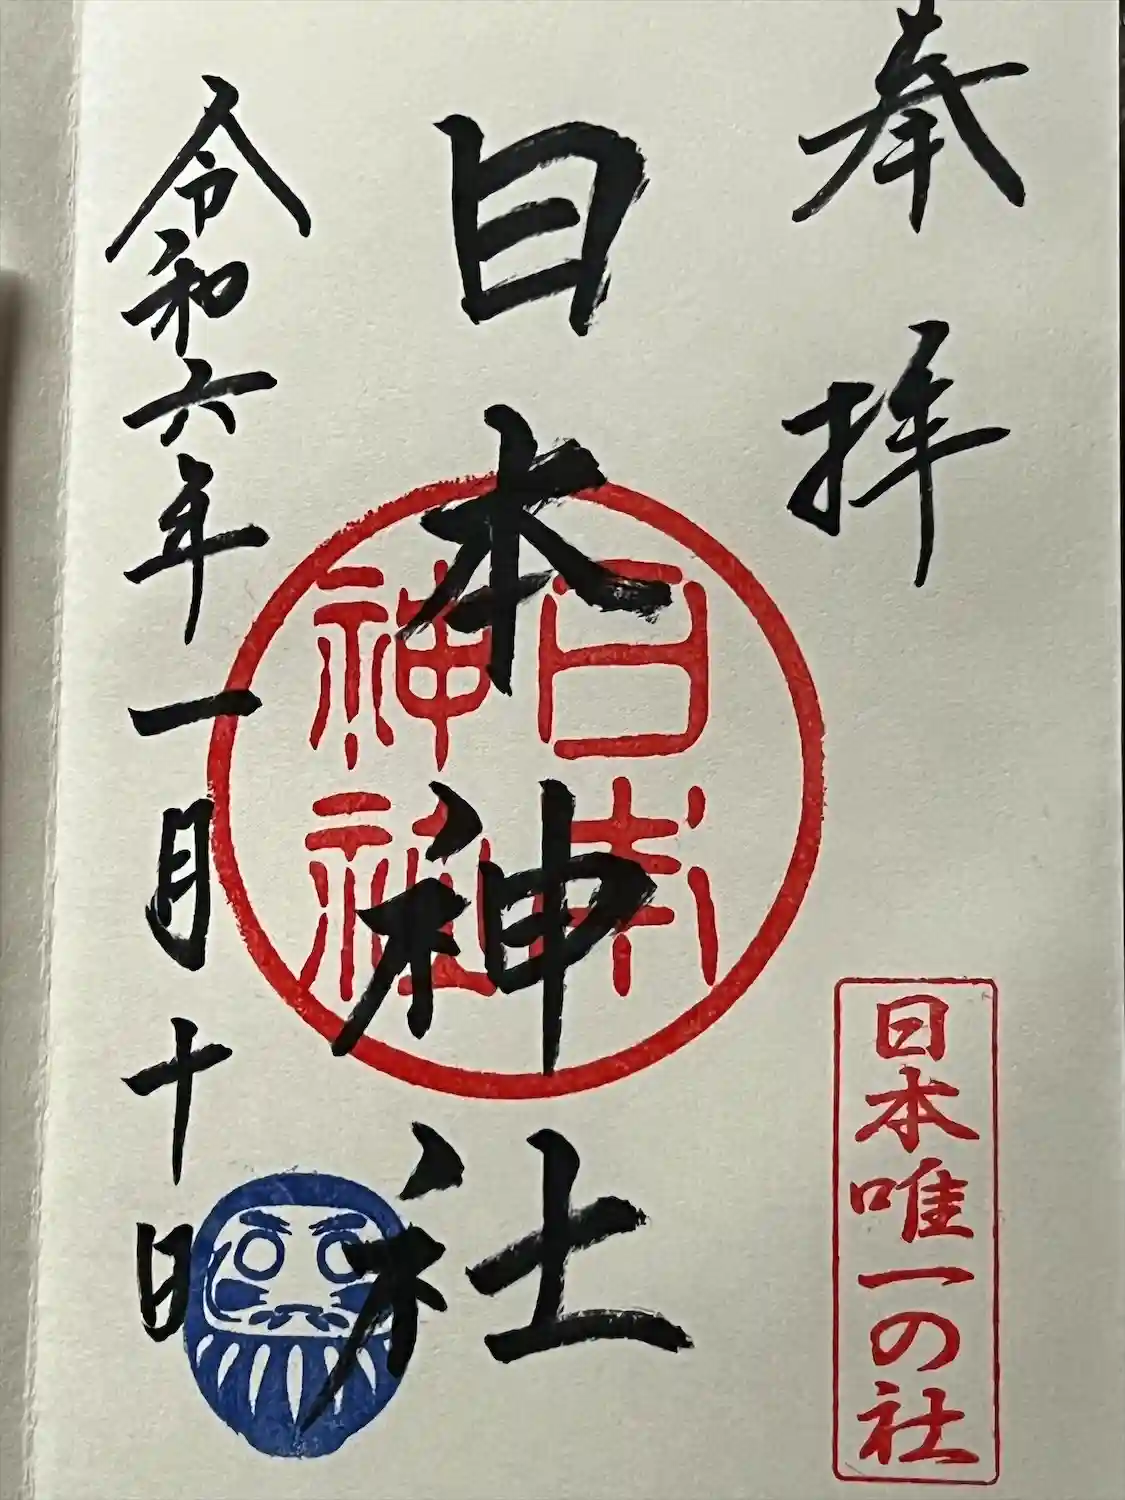 奉拝
日本唯一の社
日本神社
日本
神社
令和六年一月十日